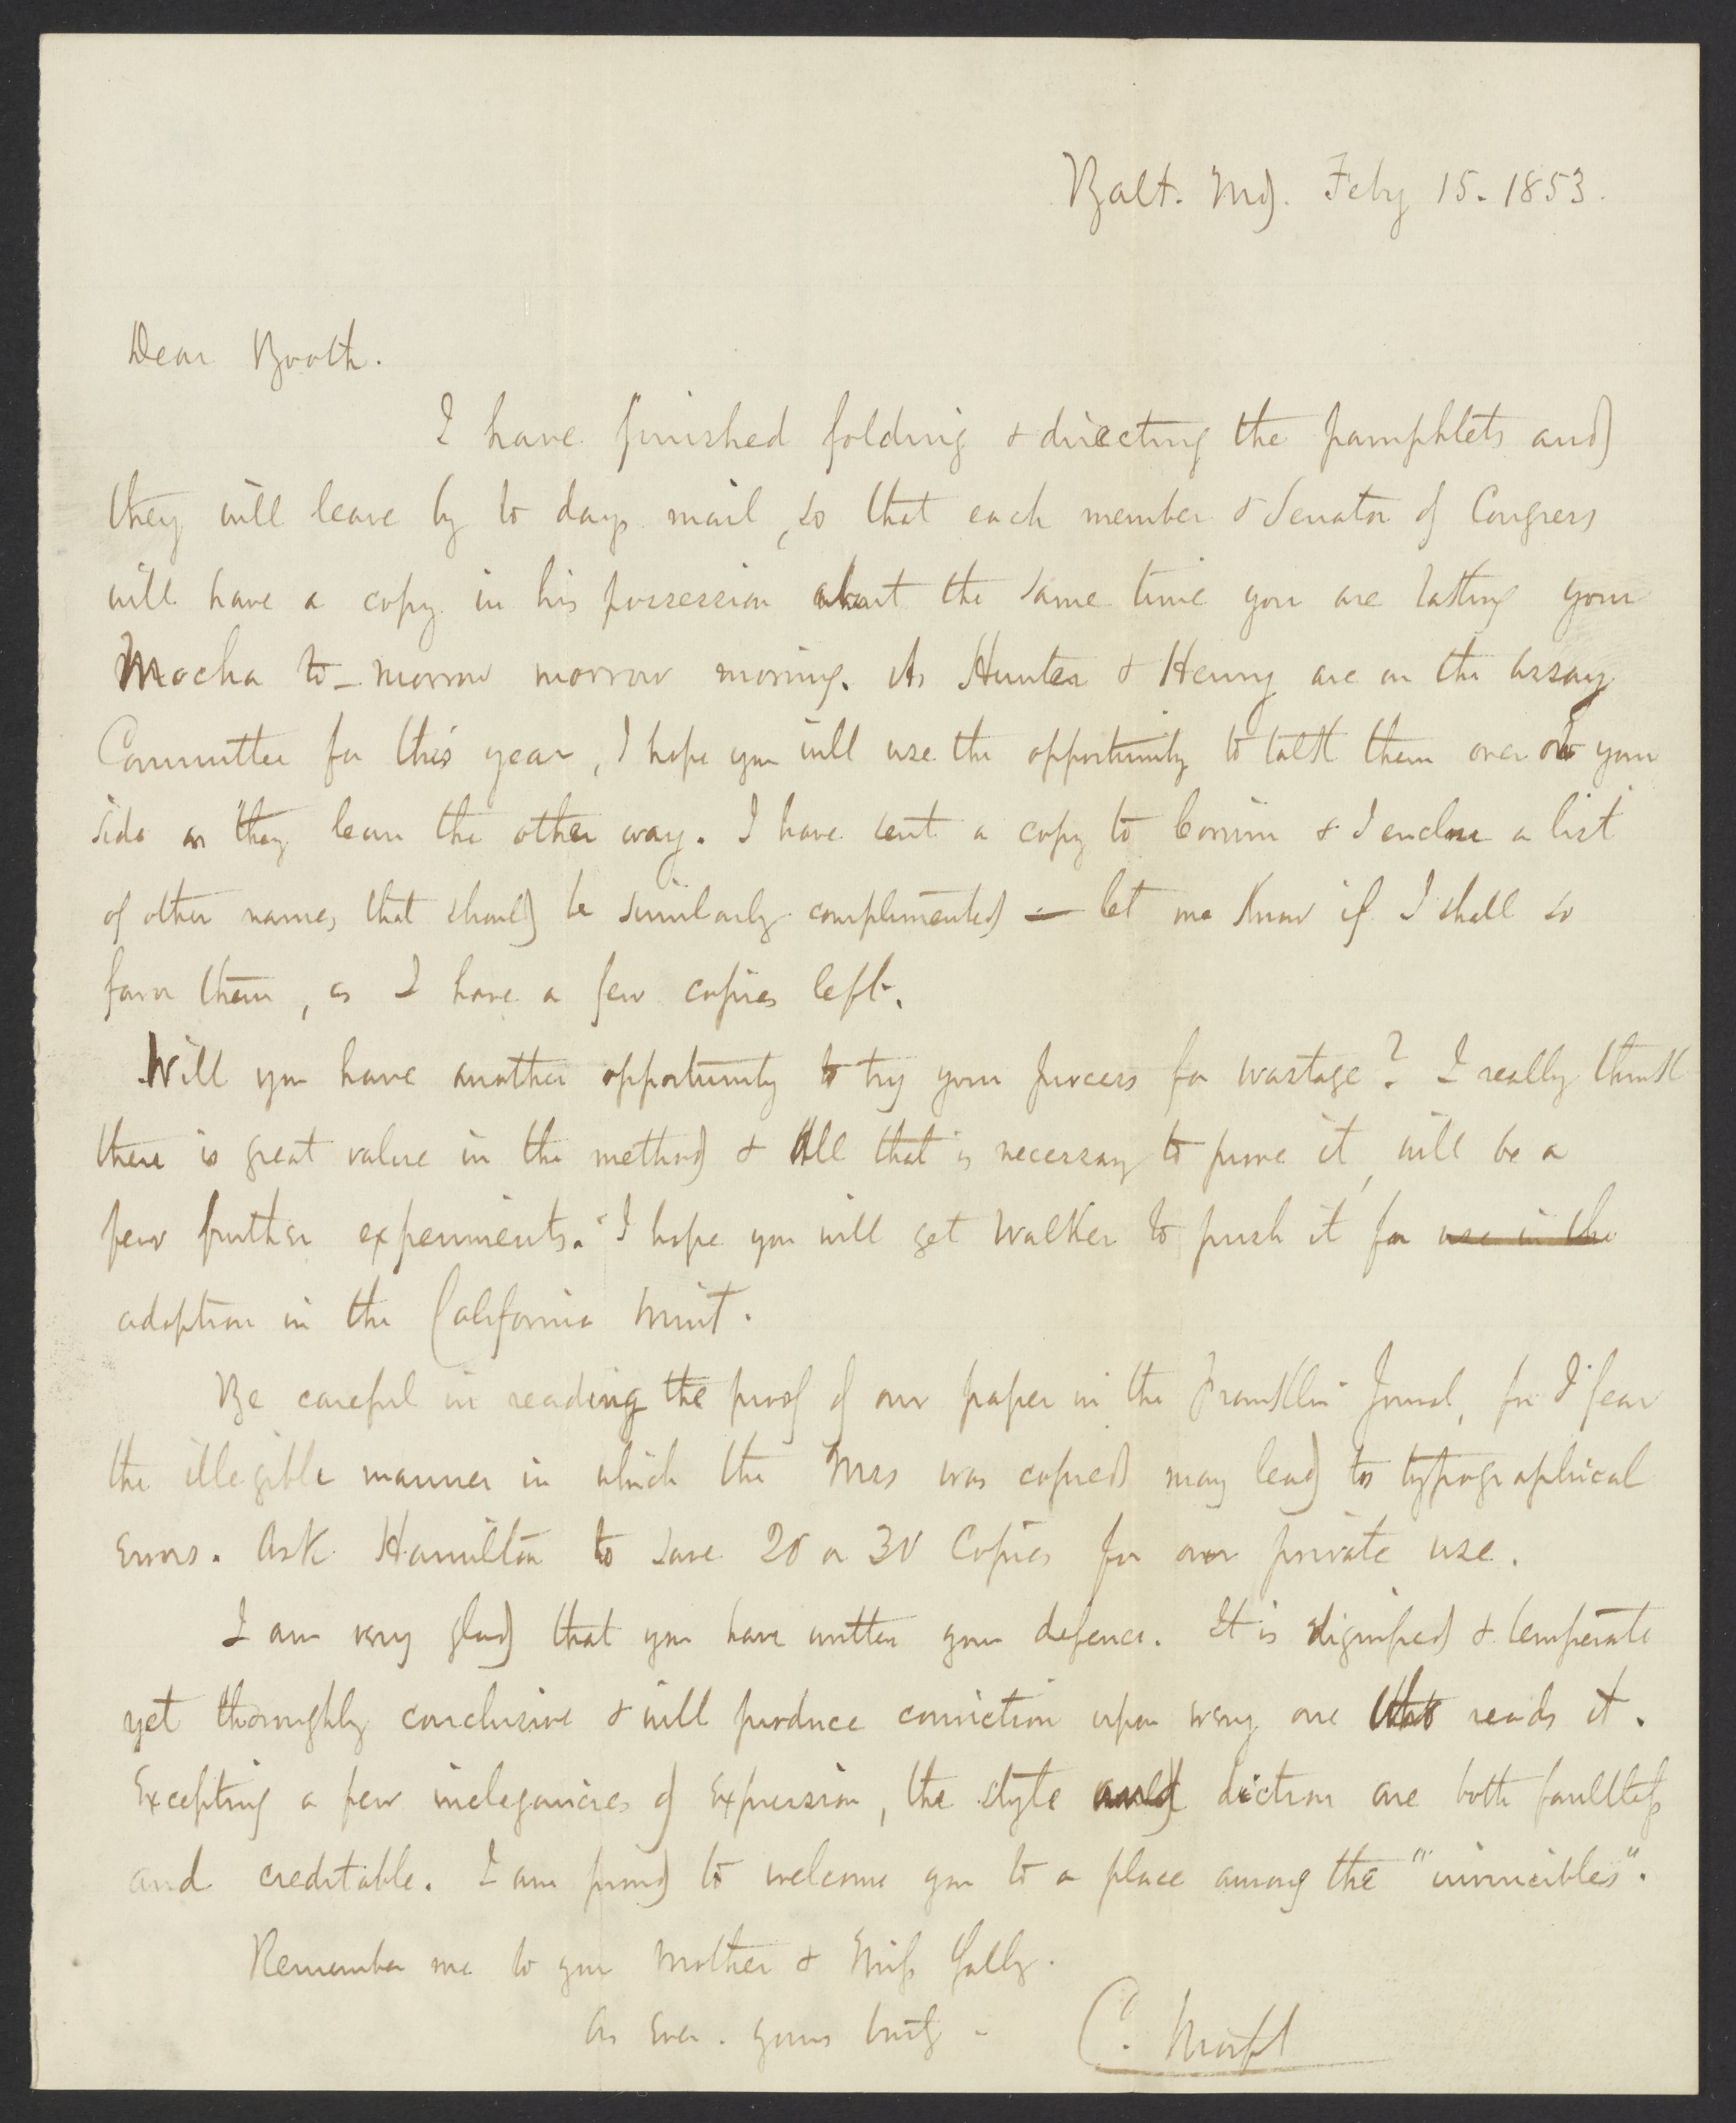 Balt. Md. Feby 15. 1853.
Dear Booth.
I have finished folding & directing the pamphlets and
they will leave by to days mail, so that each member & Senator of Congress
will have a copy in his possession about the same time you are tasting your
Mocha to-morrow morrow morning. As Hunter & Henry are on the Assay
Committee for this year, I hope you will use the opportunity to talk them over to your
side as they lean the other way. I have sent a copy to Corwin & I enclose a list
of other names that should be similarly complimented — let me know if I shall so
favor them, as I have a few copies left.
Will you have another opportunity to try your process for wastage? I really think
there is great value in the method & all that is necessary to prove it, will be a
few further experiments. I hope you will get Walker to push it for use in the
adoption in the California Mint.
Be careful in reading the proof of our paper in the Franklin Journal, for I fear
the illegible manner in which the Mss was copied may lead to typographical
Errors. Ask Hamilton to save 20 or 30 Copies for our private use.
I am very glad that you have written your defence. It is dignified & temperate
yet thoroughly conclusive & will produce conviction upon every one that reads it.
Excepting a few inelegancies of Expression, the style and diction are both faultless
and creditable. I am proud to welcome you to a place among the "invincibles".
Remember me to your Mother & Miss
As Ever. yours truly - C. Morfit